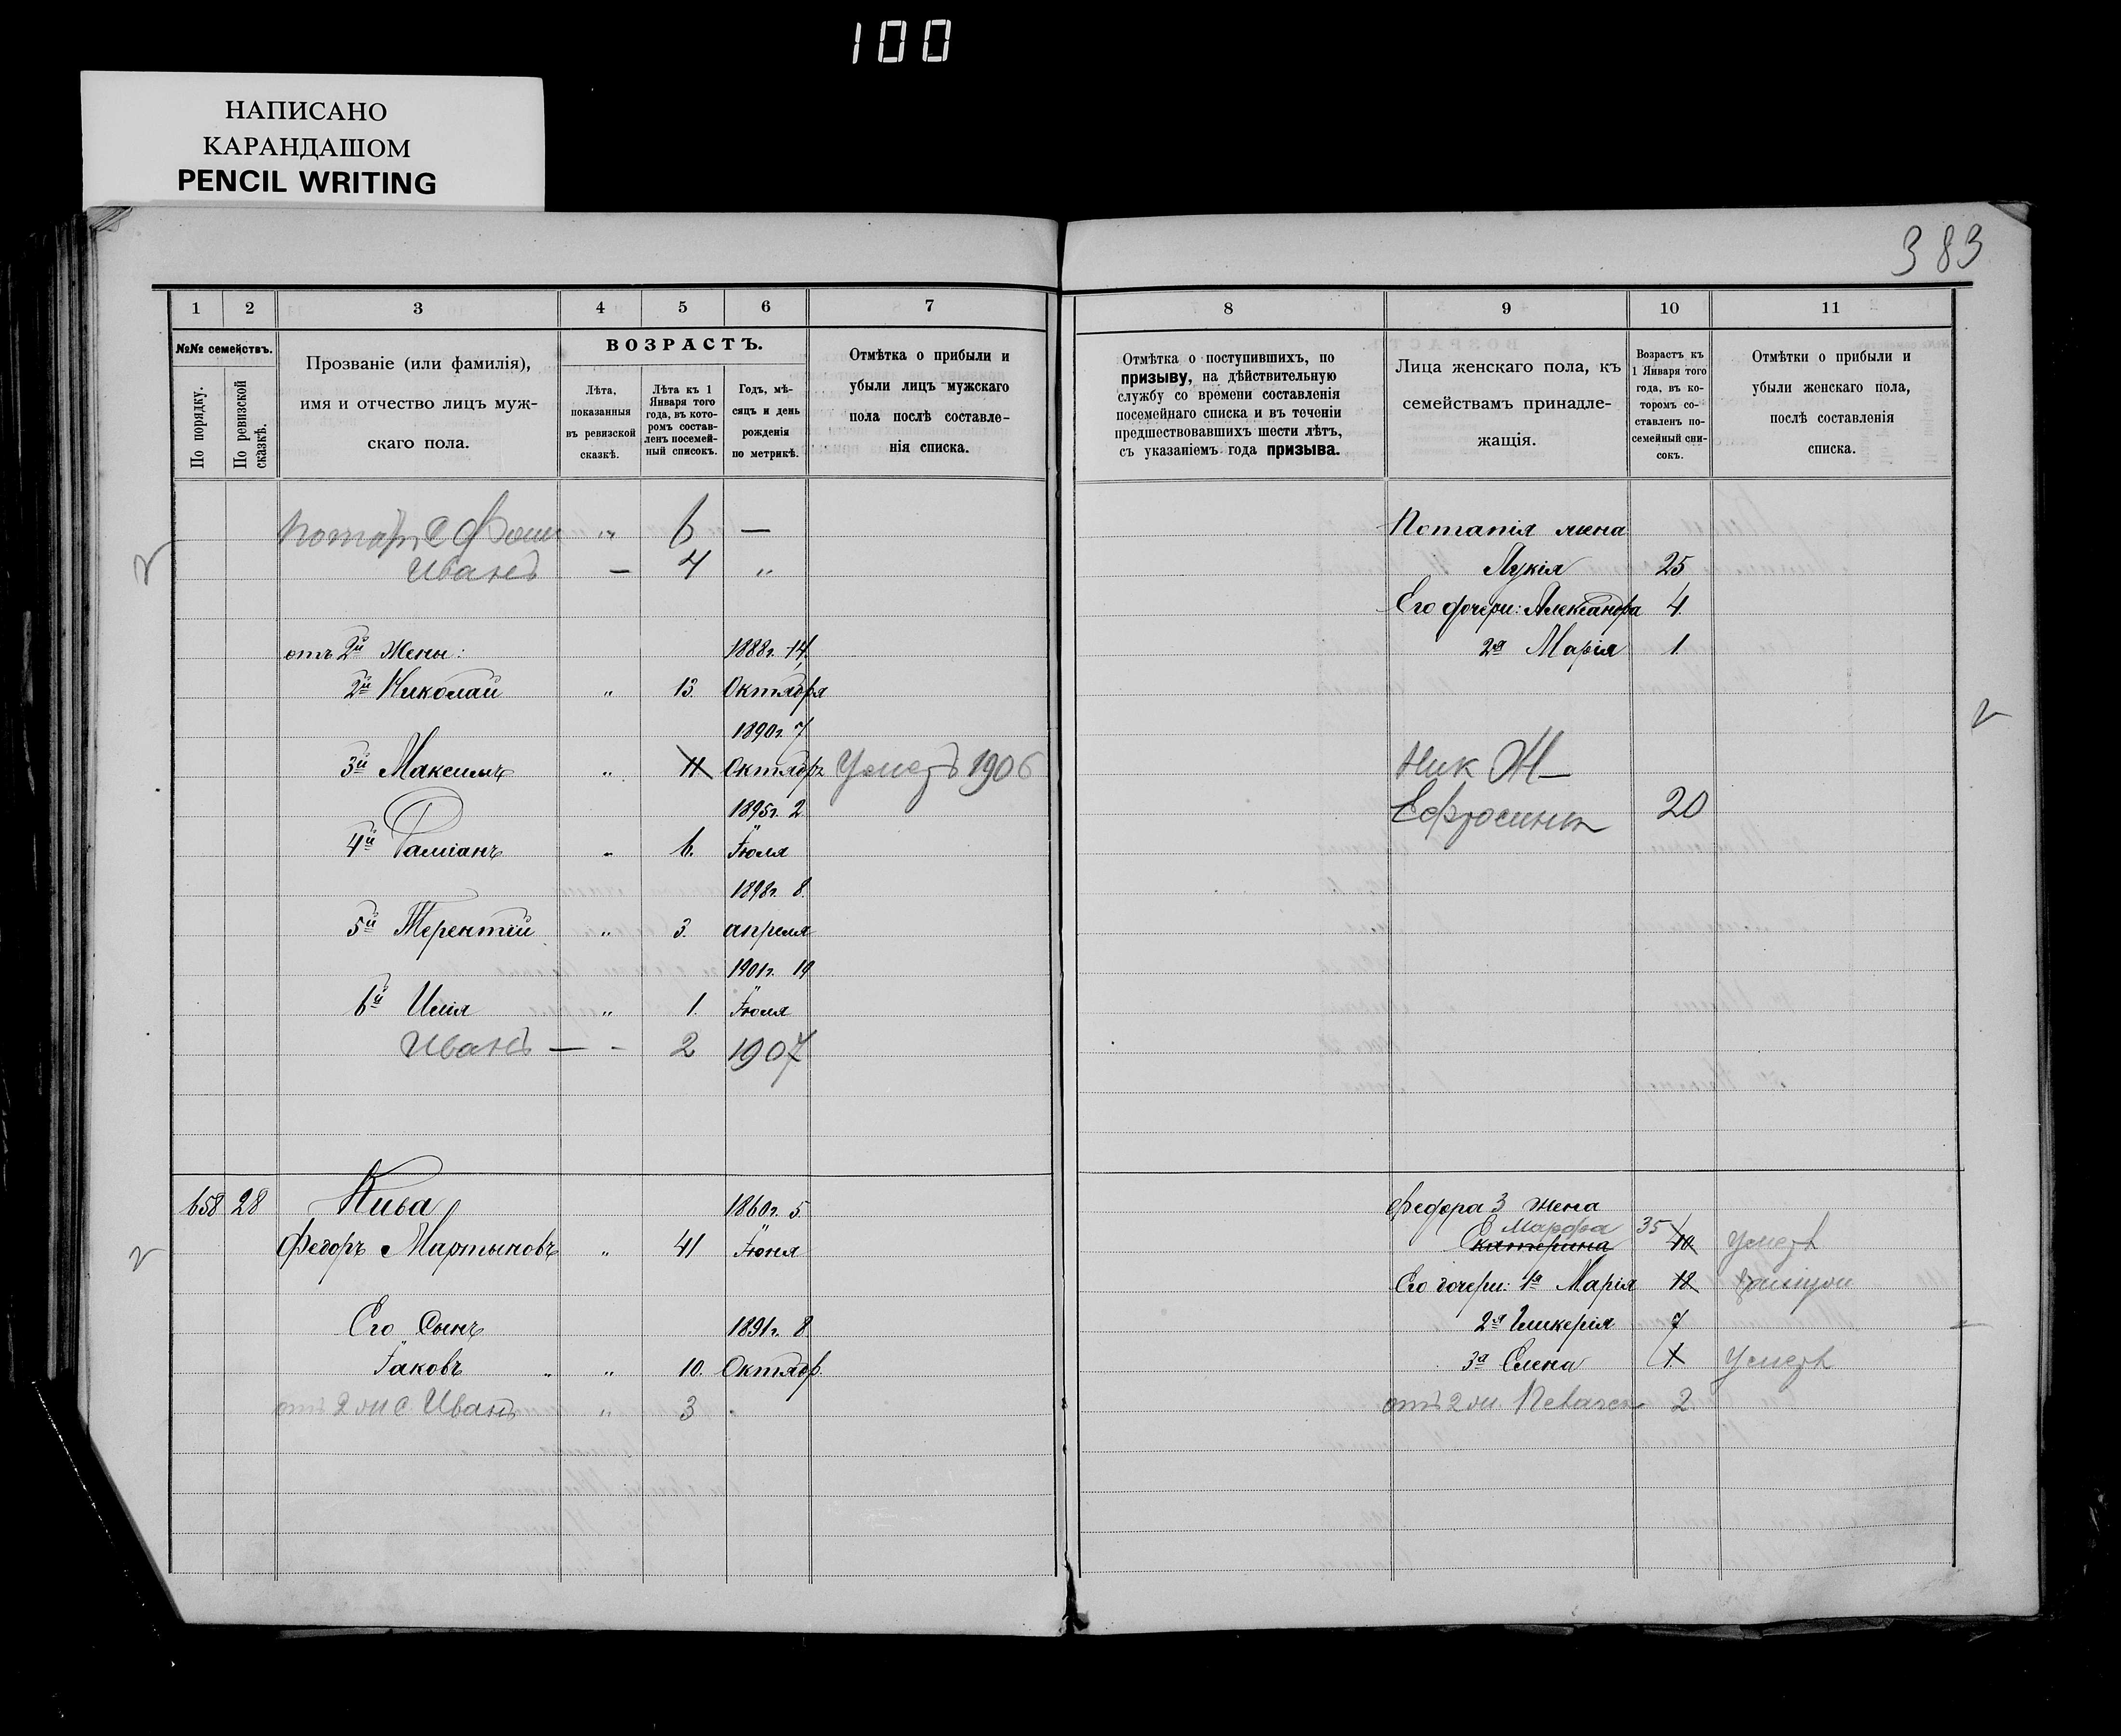 100
НАПИСАНО
КАРАНДАШОМ
PENCIL WRITING
383
1 2 3 4 5 6 7
№№ семействъ.
По порядку.
По ревизской сказкѣ.
Прозваніе (или фамилія),
имя и отчество лицъ муж-
скаго пола.
ВОЗРАСТЪ.
Лѣта,
показанныя
въ ревизской
сказкѣ.
Лѣта къ 1
Января того
года, въ кото-
ромъ состав-
ленъ посемей-
ный списокъ.
Годъ, мѣ-
сяцъ и день
рожденія
по метрикѣ.
Отмѣтка о прибыли и
убыли лицъ мужскаго
пола послѣ составле-
нія списка.
8 9 10 11
Отмѣтка о поступившихъ, по
призыву, на дѣйствительную
службу со времени составленія
посемейнаго списка и въ теченіи
предшествовавшихъ шести лѣтъ,
съ указаніемъ года призыва.
Лица женскаго пола, къ
семействамъ принадле-
жащія.
Возрастъ къ
1 Января того
года, въ ко-
торомъ со-
ставленъ по-
семейный спи-
сокъ.
Отмѣтки о прибыли и
убыли женскаго пола,
послѣ составленія
списка.
" 6 —
Иванъ — 4 "
отъ 2й Жены: 1888г. 14
2й Николай " 13 Октября
1890г. 7
3й Максимъ " 11 Октябр. Умеръ 1906
1895г. 2
4й Даміанъ " 6. Іюля
1898г. 8
5й Терентій " 3. апреля
1901г. 19
6й Илія " 1. Іюля
Иванъ — - 2 1907
658 28 Кива 1860г. 5
Федоръ Мартыновъ " 41 Іюня
Его Сынъ 1891г. 8
Іаковъ " " 10. Октябр.
отъ 2 Иванъ " 3
Потапія жена
Лукія 25
Его дочери: Александра 4
2я Марія 1.
Ник Ж—
Ефросинія 20
Федора 3 жена
Марфа 35
Екатерина 40 Умерл
Его дочери: 1я Марія 18
2я Гликерія 7
3я Елена 1. Умерл
отъ 2 2